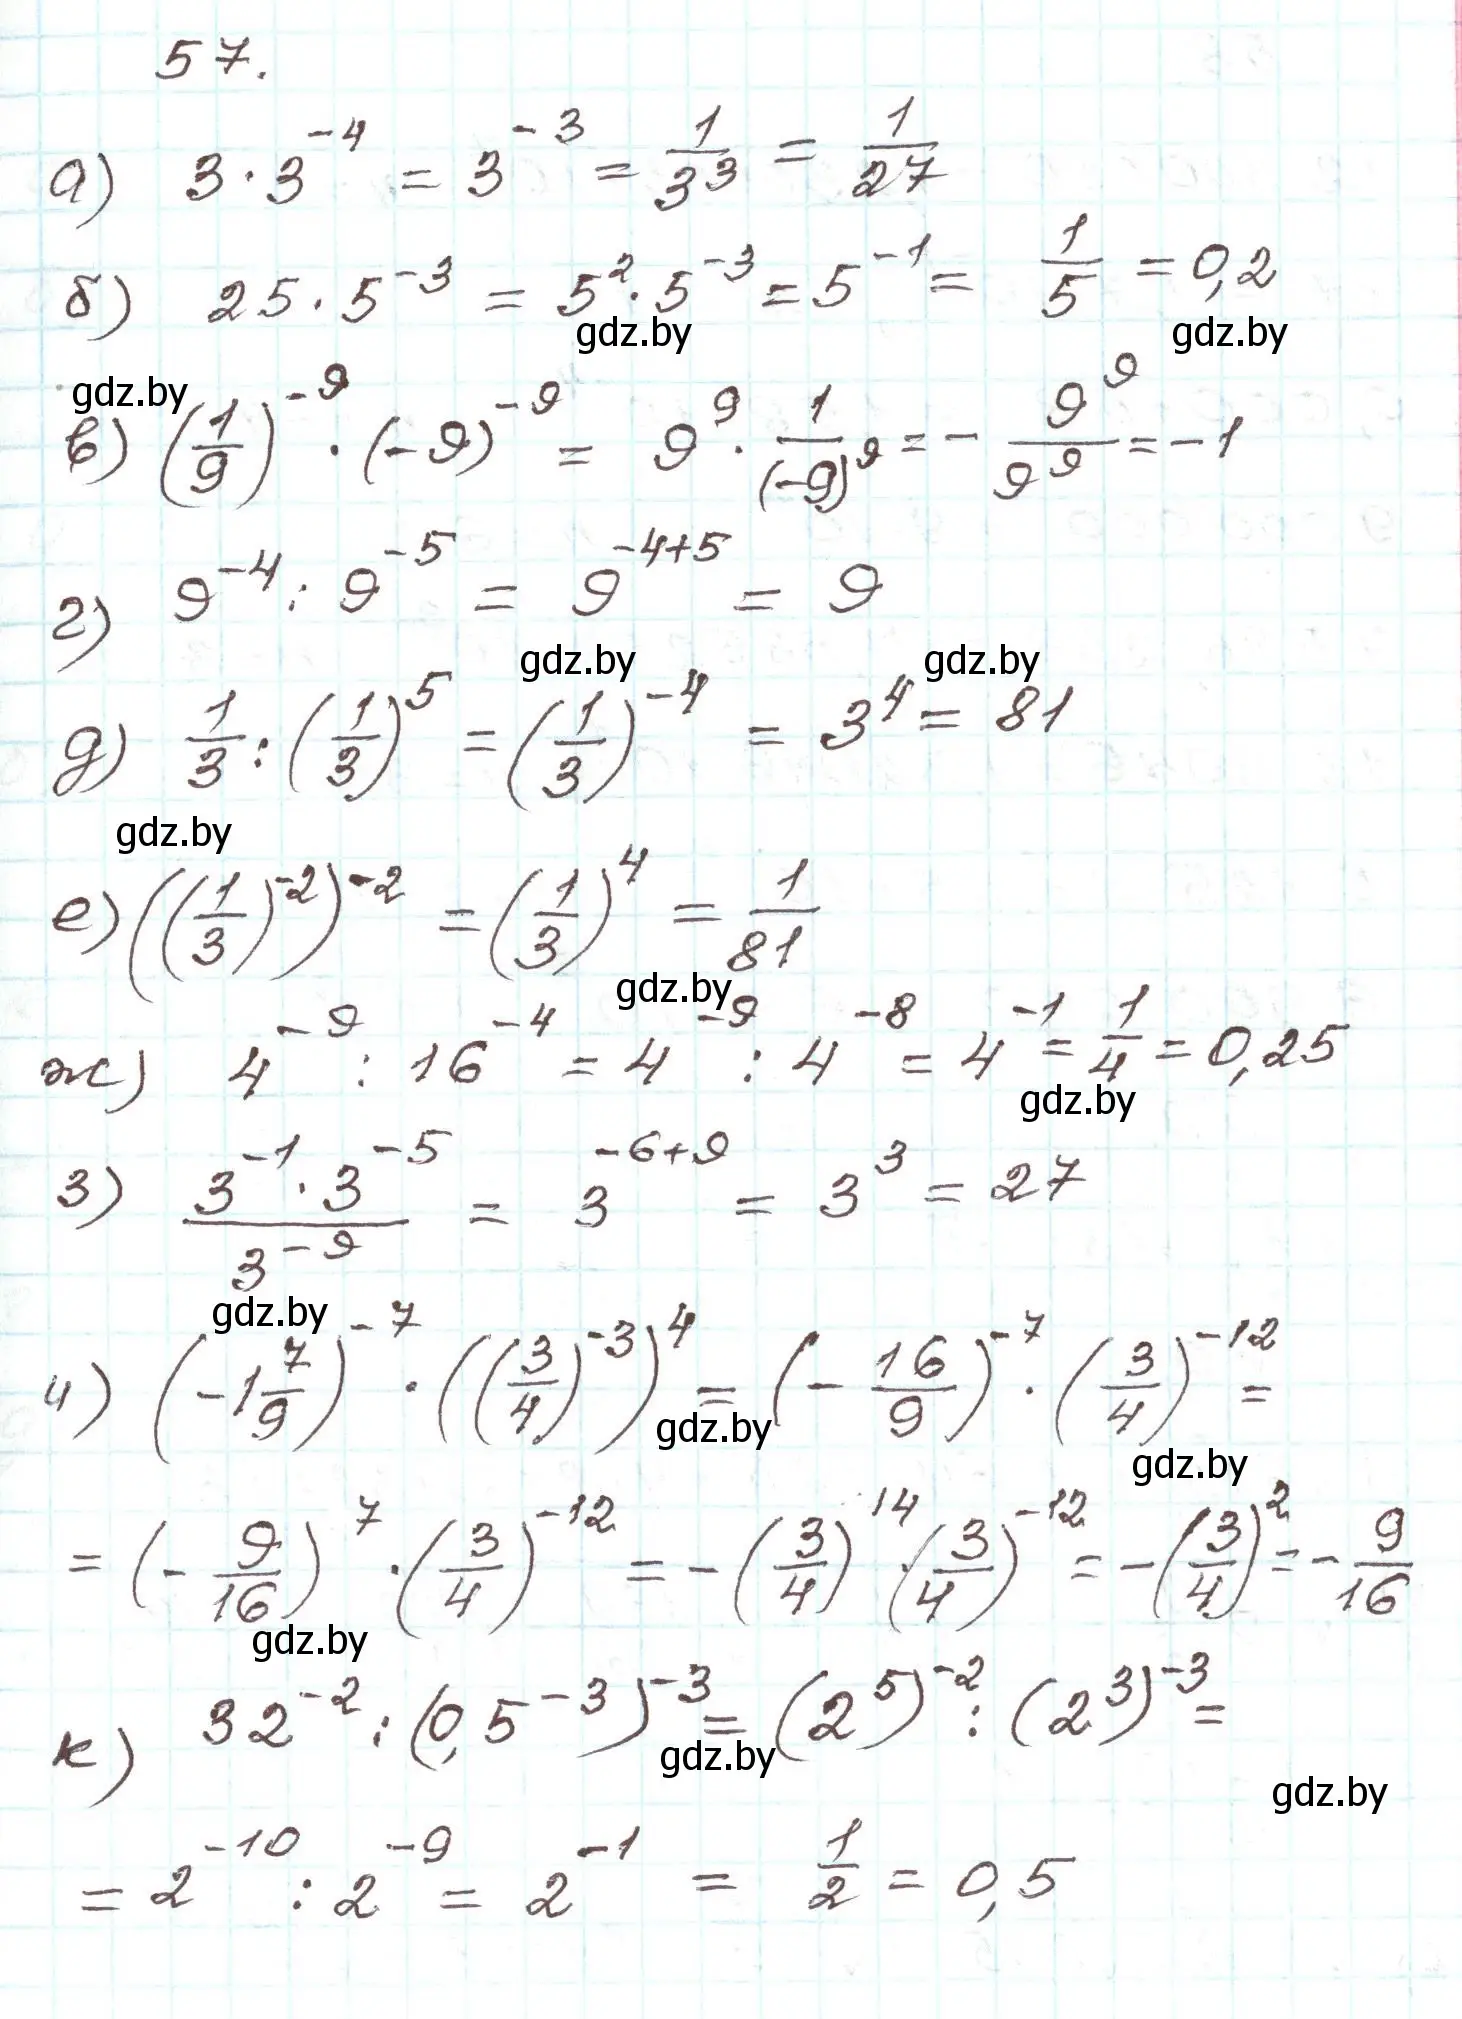 57.
а) 3 · 3^{-4} = 3^{-3} = 1/3^3 = 1/27
б) 25 · 5^{-3} = 5^2 · 5^{-3} = 5^{-1} = 1/5 = 0,2
gdz.by gdz.by
gdz.by
в) (1/9)^{-9} · (-9)^{-9} = 9^9 · 1/(-9)^9 = - 9^9/9^9 = -1
г) 9^{-4} : 9^{-5} = 9^{-4+5} = 9
gdz.by gdz.by
д) 1/3 : (1/3)^5 = (1/3)^{-4} = 3^4 = 81
gdz.by
е) ((1/3)^{-2})^{-2} = (1/3)^4 = 1/81
gdz.by
ж) 4^{-9} : 16^{-4} = 4^{-9} : 4^{-8} = 4^{-1} = 1/4 = 0,25
gdz.by
з) (3^{-1} · 3^{-5})/3^{-9} = 3^{-6+9} = 3^3 = 27
gdz.by
и) (-1 7/9)^{-7} · ((3/4)^{-3})^4 = (-16/9)^{-7} · (3/4)^{-12} =
gdz.by
gdz.by
= (-9/16)^7 · (3/4)^{-12} = -(3/4)^{14} · (3/4)^{-12} = -(3/4)^2 = -9/16
gdz.by
к) 32^{-2} : (0,5^{-3})^{-3} = (2^5)^{-2} : (2^3)^{-3} =
gdz.by
gdz.by
= 2^{-10} : 2^{-9} = 2^{-1} = 1/2 = 0,5